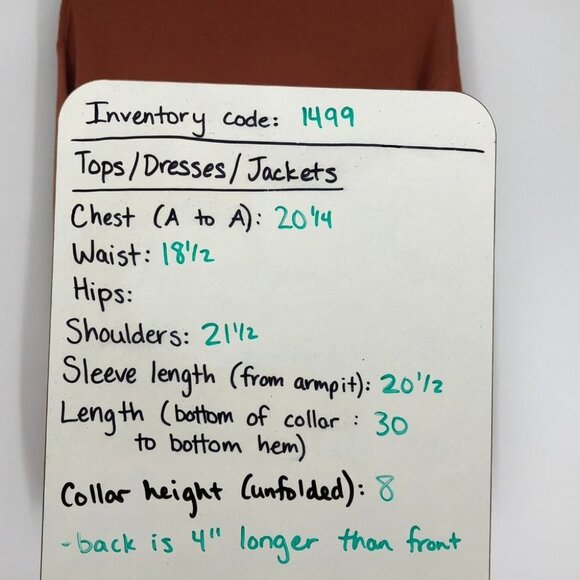 Inventory code: 1499
Tops/Dresses/Jackets
Chest (A to A): 20 1/4
Waist: 18 1/2
Hips:
Shoulders: 21 1/2
Sleeve length (from armpit): 20 1/2
Length (bottom of collar : 30
to bottom hem)
Collar height (unfolded): 8
-back is 4" longer than front